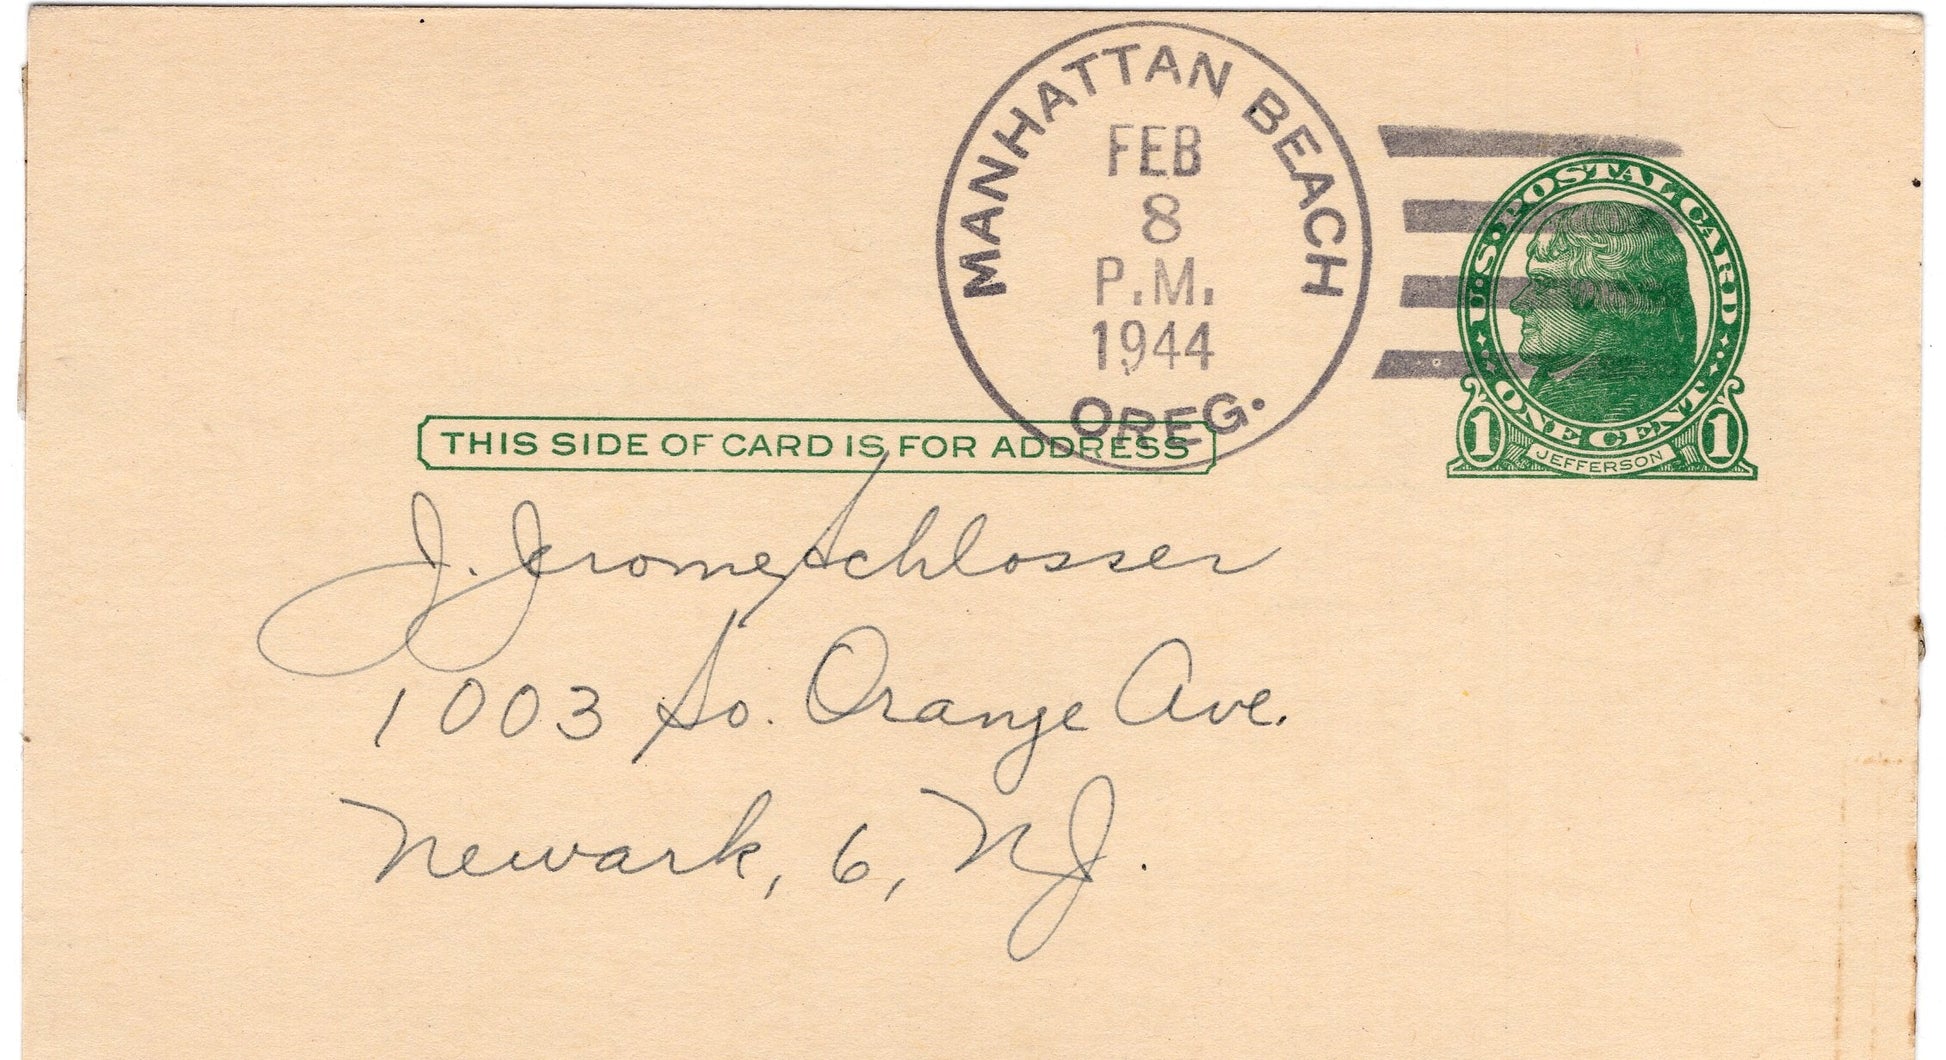 MANHATTAN BEACH
FEB
8
P.M.
1944
OREG.
U.S. POSTAL CARD
ONE CENT
1 JEFFERSON 1
THIS SIDE OF CARD IS FOR ADDRESS
J. Jerome Schlosser
1003 So. Orange Ave.
Newark, 6, NJ.